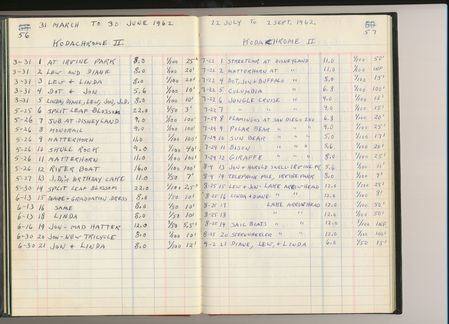 31 MARCH TO 30 JUNE 1962
56
KODACHROME II
3-31 1 AT IRVINE PARK 8.0 1/100 25'
3-31 2 LEW AND DIANE 8.0 1/100 20'
3-31 3 LEW & LINDA 8.0 1/100 20'
3-31 4 DOT & JON 5.6 1/100 10'
3-31 5 LINDA, DIANE, LEW, JON, J.D. 8.0 1/100 10'
5-25 6 SPLIT LEAF BLOSSOM 22.0 1/50 3'
5-26 7 SUB AT DISNEYLAND 9.0 1/100 100'
5-26 8 MONORAIL 9.0 1/100 100'
5-26 9 MATTERHORN 16.0 1/100 100'
5-26 10 SKULL ROCK 9.0 1/100 40'
5-26 11 MATTERHORN 11.0 1/100 100'
5-26 12 RIVER BOAT 16.0 1/100 100'
5-27 13 J.D.'s BIRTHDAY CAKE 11.0 1/50 7'
5-30 14 SPLIT LEAF BLOSSOM 22.0
6-13 15 GRADUATION DRESS 8.0 1/50 10'
6-13 16 SAME 8.0 1/50 10'
6-13 18 LINDA 8.0 1/50 10'
6-16 19 JON - MAD HATTER 12.0 1/50 5.5'
6-30 20 JON - NEW TRICYCLE 8.0 1/100 12'
6-30 21 JON & LINDA 8.0 1/100 12'
22 JULY TO 2 SEPT. 1962
57
KODACHROME II
7-22 1 STREETCAR AT DISNEYLAND 11.0 1/100 50'
7-22 2 MATTERHORN AT " 11.0 1/100 INF
7-22 4 DOT, JON & BUFFALO " 8.0 1/100 15'
7-22 5 COLUMBIA " 6.8 1/100 100'
7-22 6 JUNGLE CRUISE " 9.0 1/100 12'
7-22 7 " " 9.0 1/100 15'
7-29 8 FLAMINGOS AT SAN DIEGO ZOO 6.8 1/100 20'
7-29 9 POLAR BEAR " " " 9.0 1/100 25'
7-29 10 SUN BEAR " " " 9.0 1/100 17'
7-29 11 BISON " " " 5.6 1/100 20'
7-29 12 GIRAFFE " " " 8.0 1/100 25'
8-4 13 JON & HAROLD SNELL - IRVINE PK 5.6 1/100 11'
8-4 14 TELEPHONE POLE, IRVINE PARK 8.0 1/100 7'
8-25 15 LEW & JON - LAKE ARROWHEAD 12.0 1/100 25'
8-25 16 LINDA & DIANE " " 12.0 1/100 8'
8-25 17 LAKE ARROWHEAD 12.0 1/100 50'
8-25 18 " " 12.0 1/100 50'
8-25 19 SAIL BOATS " " 12.0 1/100 INF
8-25 20 STERNWHEELER " " 12.0 1/100 100'
9-2 21 DIANE, LEW, & LINDA 6.0 1/50 15'